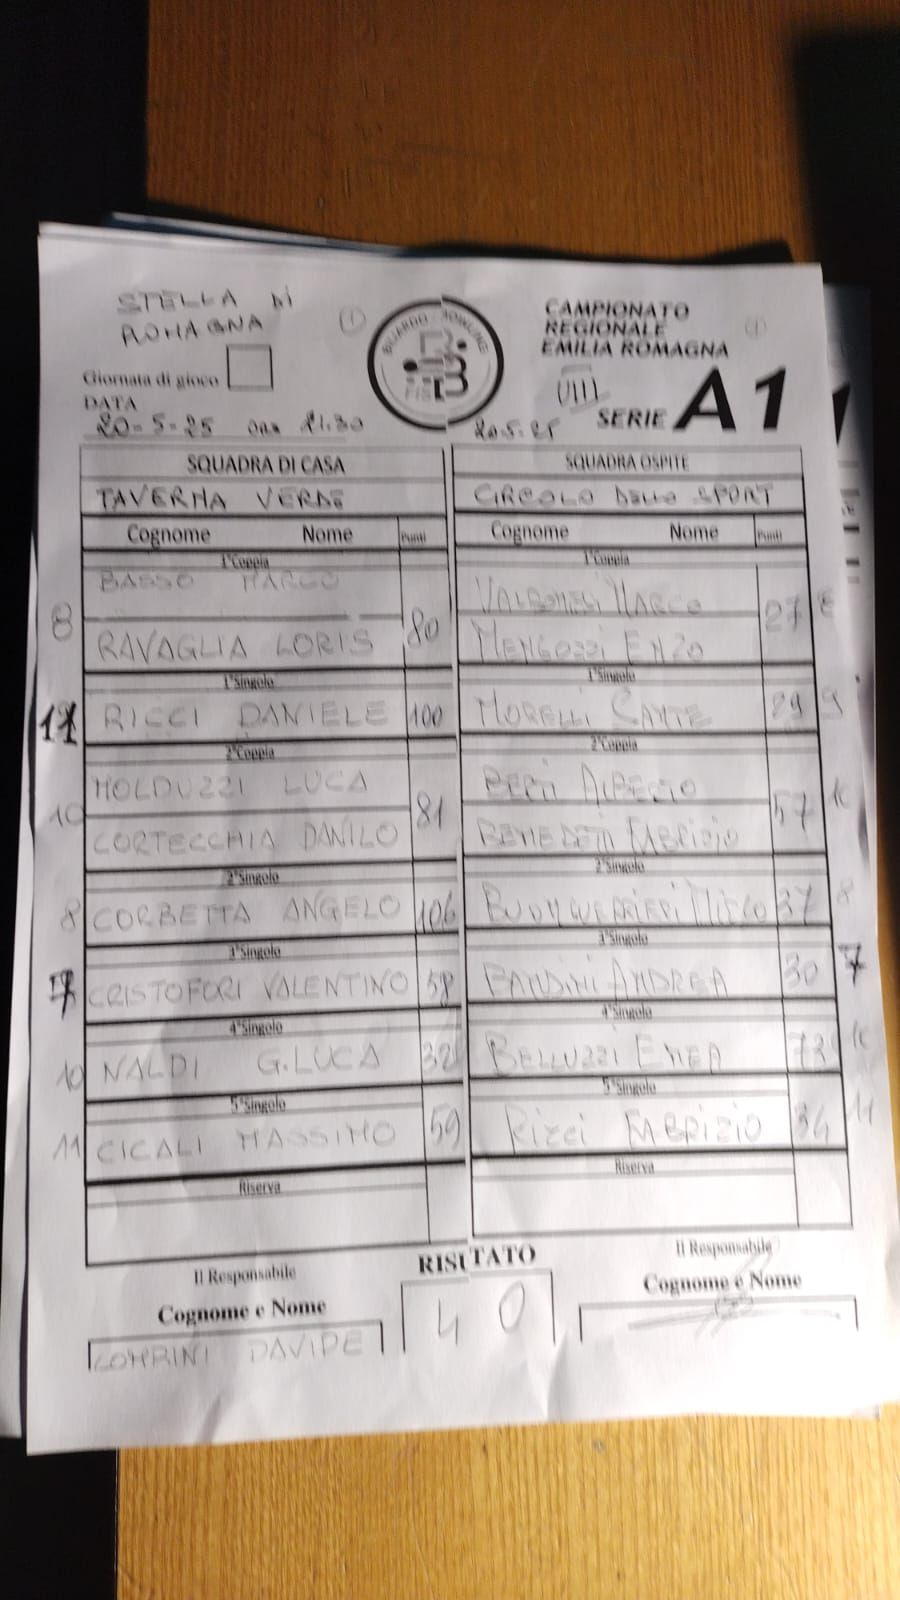 STELLA DI
ROMAGNA
CAMPIONATO
REGIONALE
EMILIA ROMAGNA
Giornata di gioco
VIII
SERIE A1
DATA
20-5-25 ORE 21.30
20.5.25
SQUADRA DI CASA
SQUADRA OSPITE
TAVERNA VERDE
CIRCOLO DELLO SPORT
Cognome Nome Punti
Cognome Nome Punti
1°Coppia
1°Coppia
BASSO MARCO
VALBONESI MARCO
8 80
27 8
RAVAGLIA LORIS
MENGOZZI ENZO
1°Singolo
1°Singolo
RICCI DANIELE 100
MORELLI 29 9
2°Coppia
2°Coppia
MOLDUZZI LUCA
BERTI ALBERTO
10 81
57 10
CORTECCHIA DANILO
BENEDETTI FABRIZIO
2°Singolo
2°Singolo
8 CORBETTA ANGELO 106
BUONGUERRIERI MIRCO 37 8
3°Singolo
3°Singolo
7 CRISTOFORI VALENTINO 58
BANDINI ANDREA 30 7
4°Singolo
4°Singolo
10 NALDI G.LUCA 32
BELLUZZI ENEA 72 10
5°Singolo
5°Singolo
11 CICALI MASSIMO 59
FABRIZIO 34 11
Riserva
Riserva
Il Responsabile
RISUTATO
Il Responsabile
Cognome e Nome
4 0
Cognome e Nome
DAVIDE